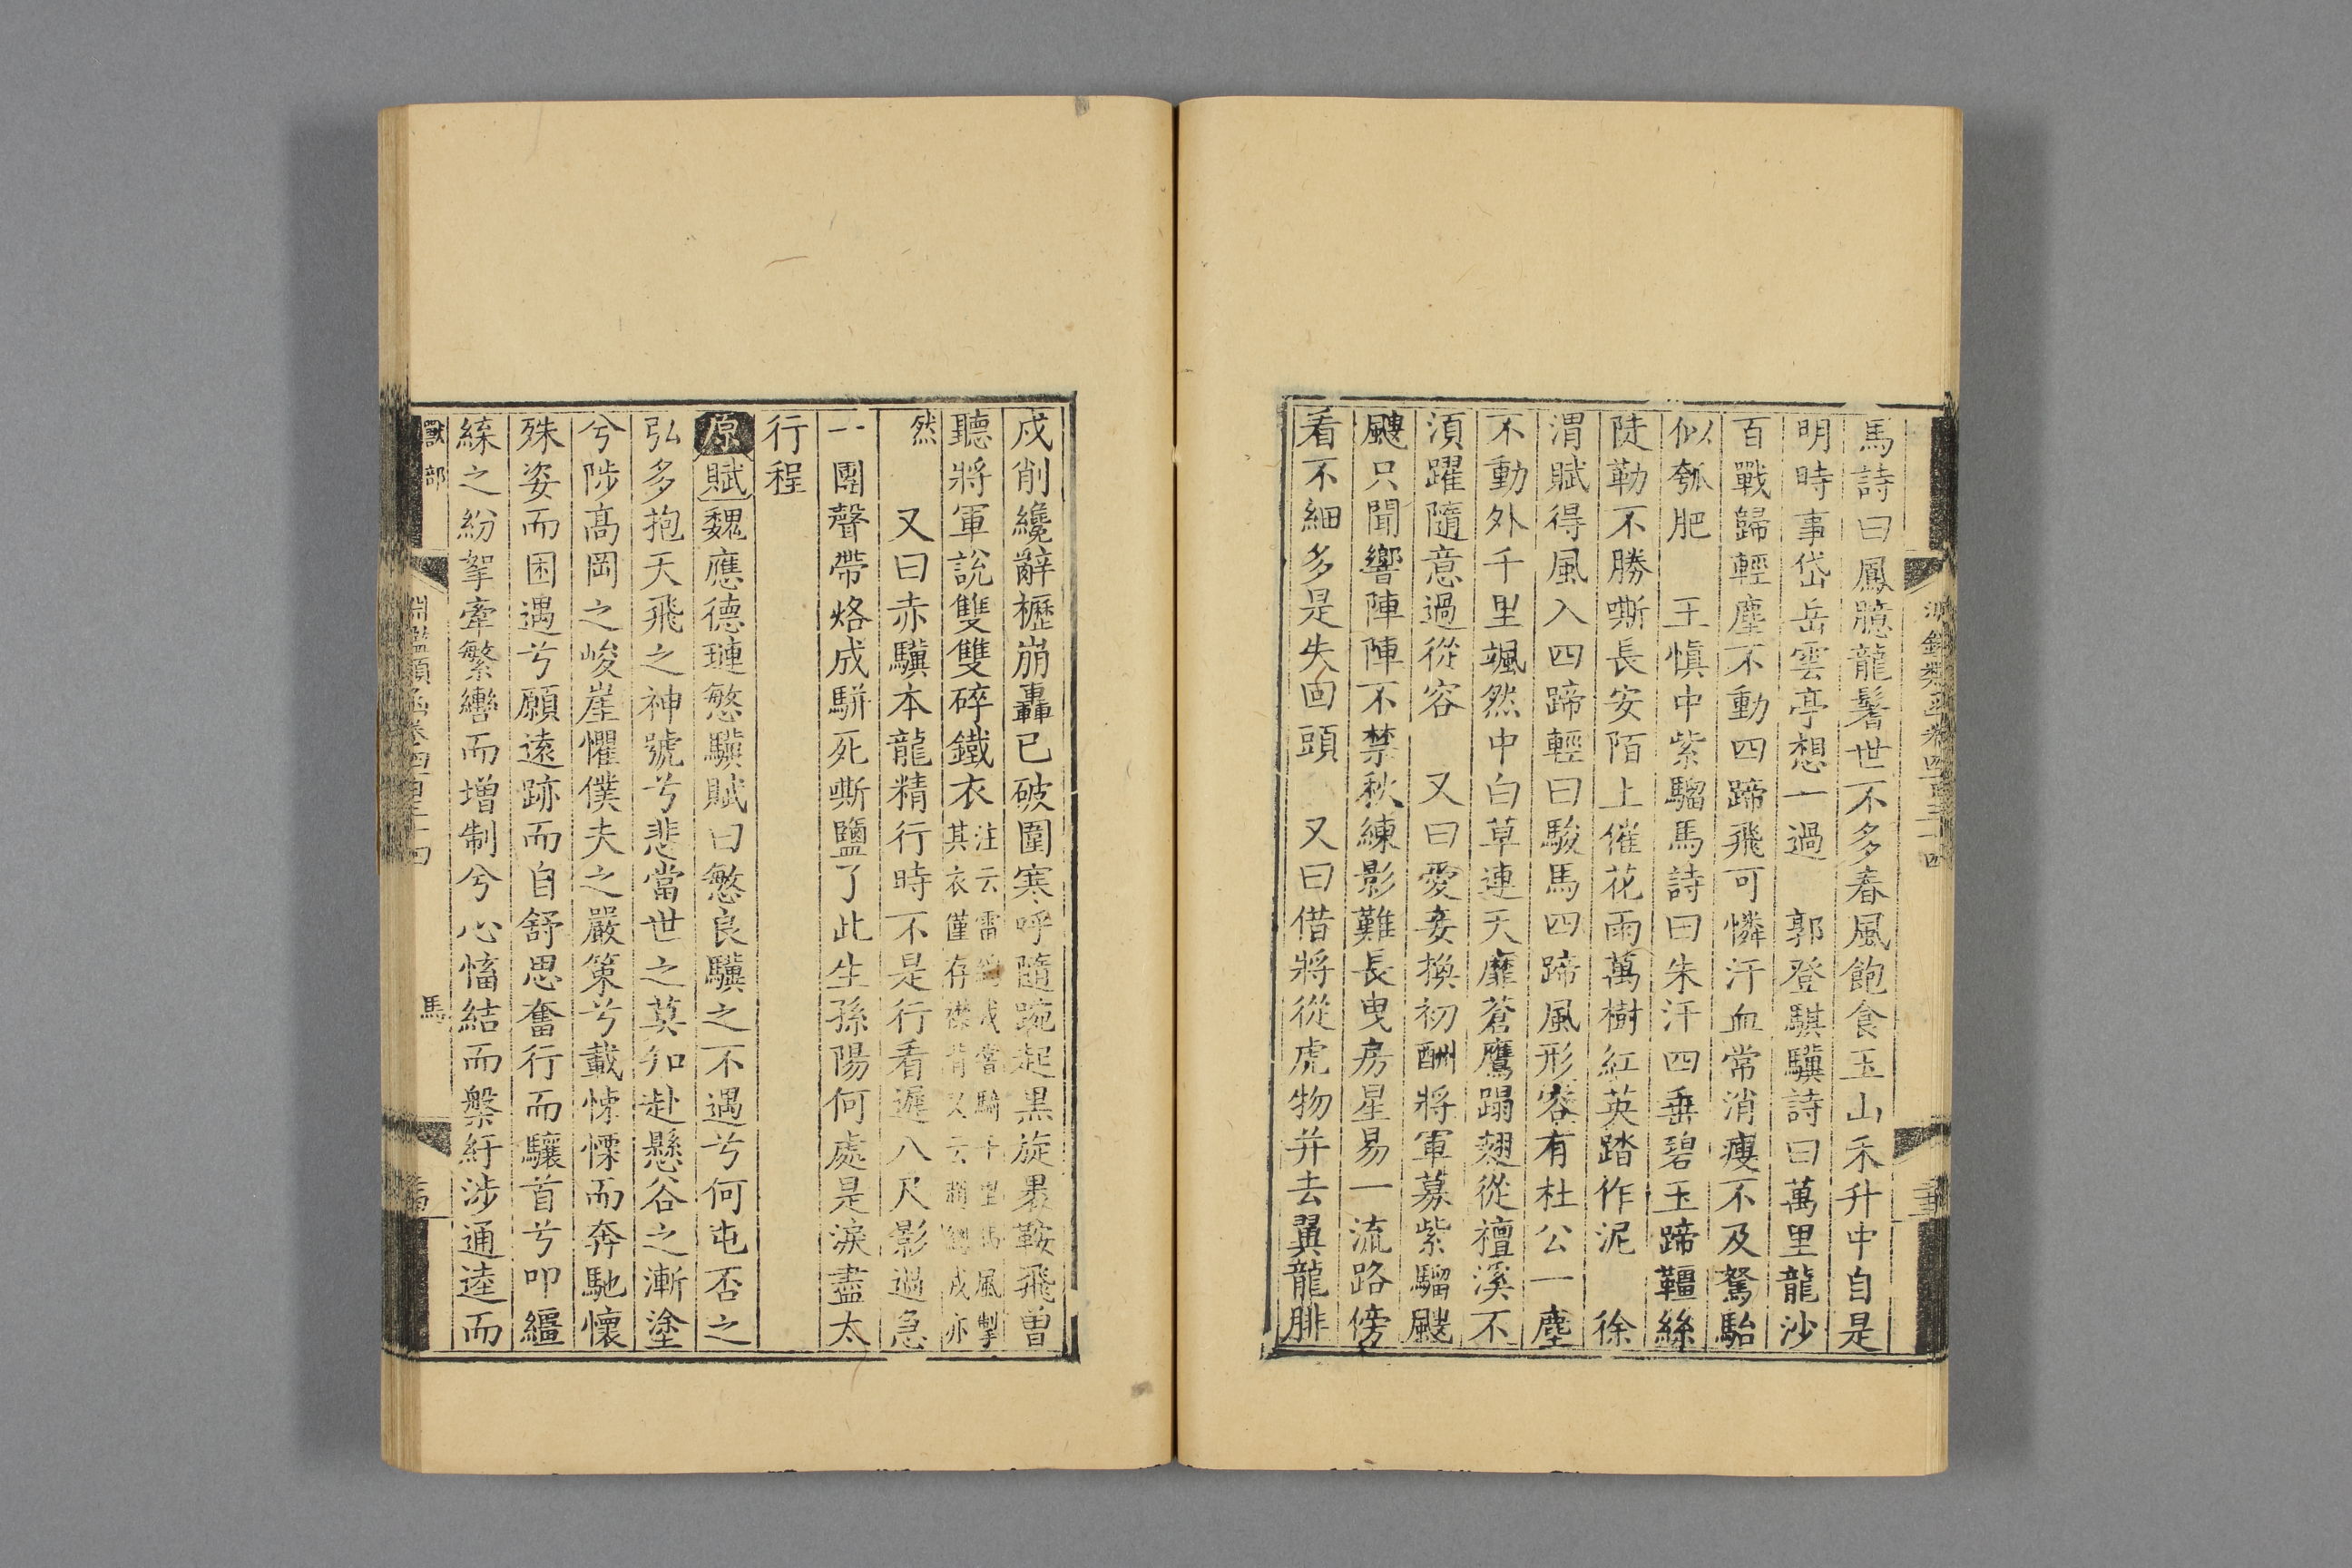 馬詩曰鳳臆龍鬐世不多春風飽食玉山禾升中自是
明時事岱岳雲亭想一過　郭登騏驥詩曰萬里龍沙
百戰歸輕塵不動四蹄飛可憐汗血常消瘦不及駑駘
似瓠肥　王愼中紫騮馬詩曰朱汗四垂碧玉蹄韁絲
陡勒不勝嘶長安陌上催花雨萬樹紅英踏作泥　徐
渭賦得風入四蹄輕曰駿馬四蹄風形容有杜公一塵
不動外千里颯然中白草連天靡蒼鷹蹋翅從禮溪不
須躍隨意過從容　又曰愛妾換初酬將軍募紫騮颼
颼只聞響陣陣不禁秋練影難長曳房星易一流路傍
看不細多是失回頭　又曰借將從虎物并去翼龍腓
戍削纔辭櫪崩轟已破圍寒呼隨踠起黑旋裹鞍飛曾
聽將軍說雙雙碎鐵衣
注云雷總戎當騎千里馬風掣
其衣僅存襟背又云趙總戎亦
然　又曰赤驥本龍精行時不是行看遲八尺影過急
一團聲帶烙成駢死嘶鹽了此生孫陽何處是淚盡太
行程
原賦魏應德璉慜驥賦曰慜良驥之不遇兮何屯否之
弘多抱天飛之神號兮悲當世之莫知赴懸谷之漸塗
兮陟高岡之峻崖懼僕夫之嚴策兮載悚慄而奔馳懷
殊姿而困遇兮願遠跡而自舒思奮行而驤首兮叩繮
緤之紛挐牽繁轡而增制兮心慉結而槃紆涉通逵而
獸部
淵鑑類函卷四百三十四
馬